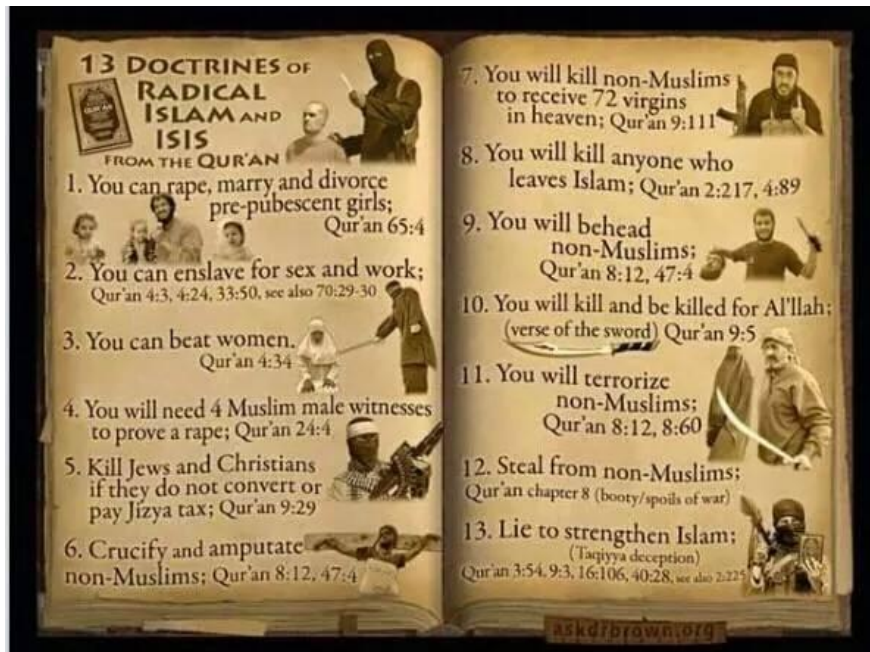 13 DOCTRINES OF
RADICAL
ISLAM AND
ISIS
FROM THE QUR'AN
QUR'AN
1. You can rape, marry and divorce
pre-pubescent girls;
Qur'an 65:4
2. You can enslave for sex and work;
Qur'an 4:3, 4:24, 33:50, see also 70:29-30
3. You can beat women.
Qur'an 4:34
4. You will need 4 Muslim male witnesses
to prove a rape; Qur'an 24:4
5. Kill Jews and Christians
if they do not convert or
pay Jizya tax; Qur'an 9:29
6. Crucify and amputate
non-Muslims; Qur'an 8:12, 47:4
7. You will kill non-Muslims
to receive 72 virgins
in heaven; Qur'an 9:111
8. You will kill anyone who
leaves Islam; Qur'an 2:217, 4:89
9. You will behead
non-Muslims;
Qur'an 8:12, 47:4
10. You will kill and be killed for Al'llah;
(verse of the sword) Qur'an 9:5
11. You will terrorize
non-Muslims;
Qur'an 8:12, 8:60
12. Steal from non-Muslims;
Qur'an chapter 8 (booty/spoils of war)
13. Lie to strengthen Islam;
(Taqiyya deception)
Qur'an 3:54, 9:3, 16:106, 40:28, see also 2:225
askdrbrown.org